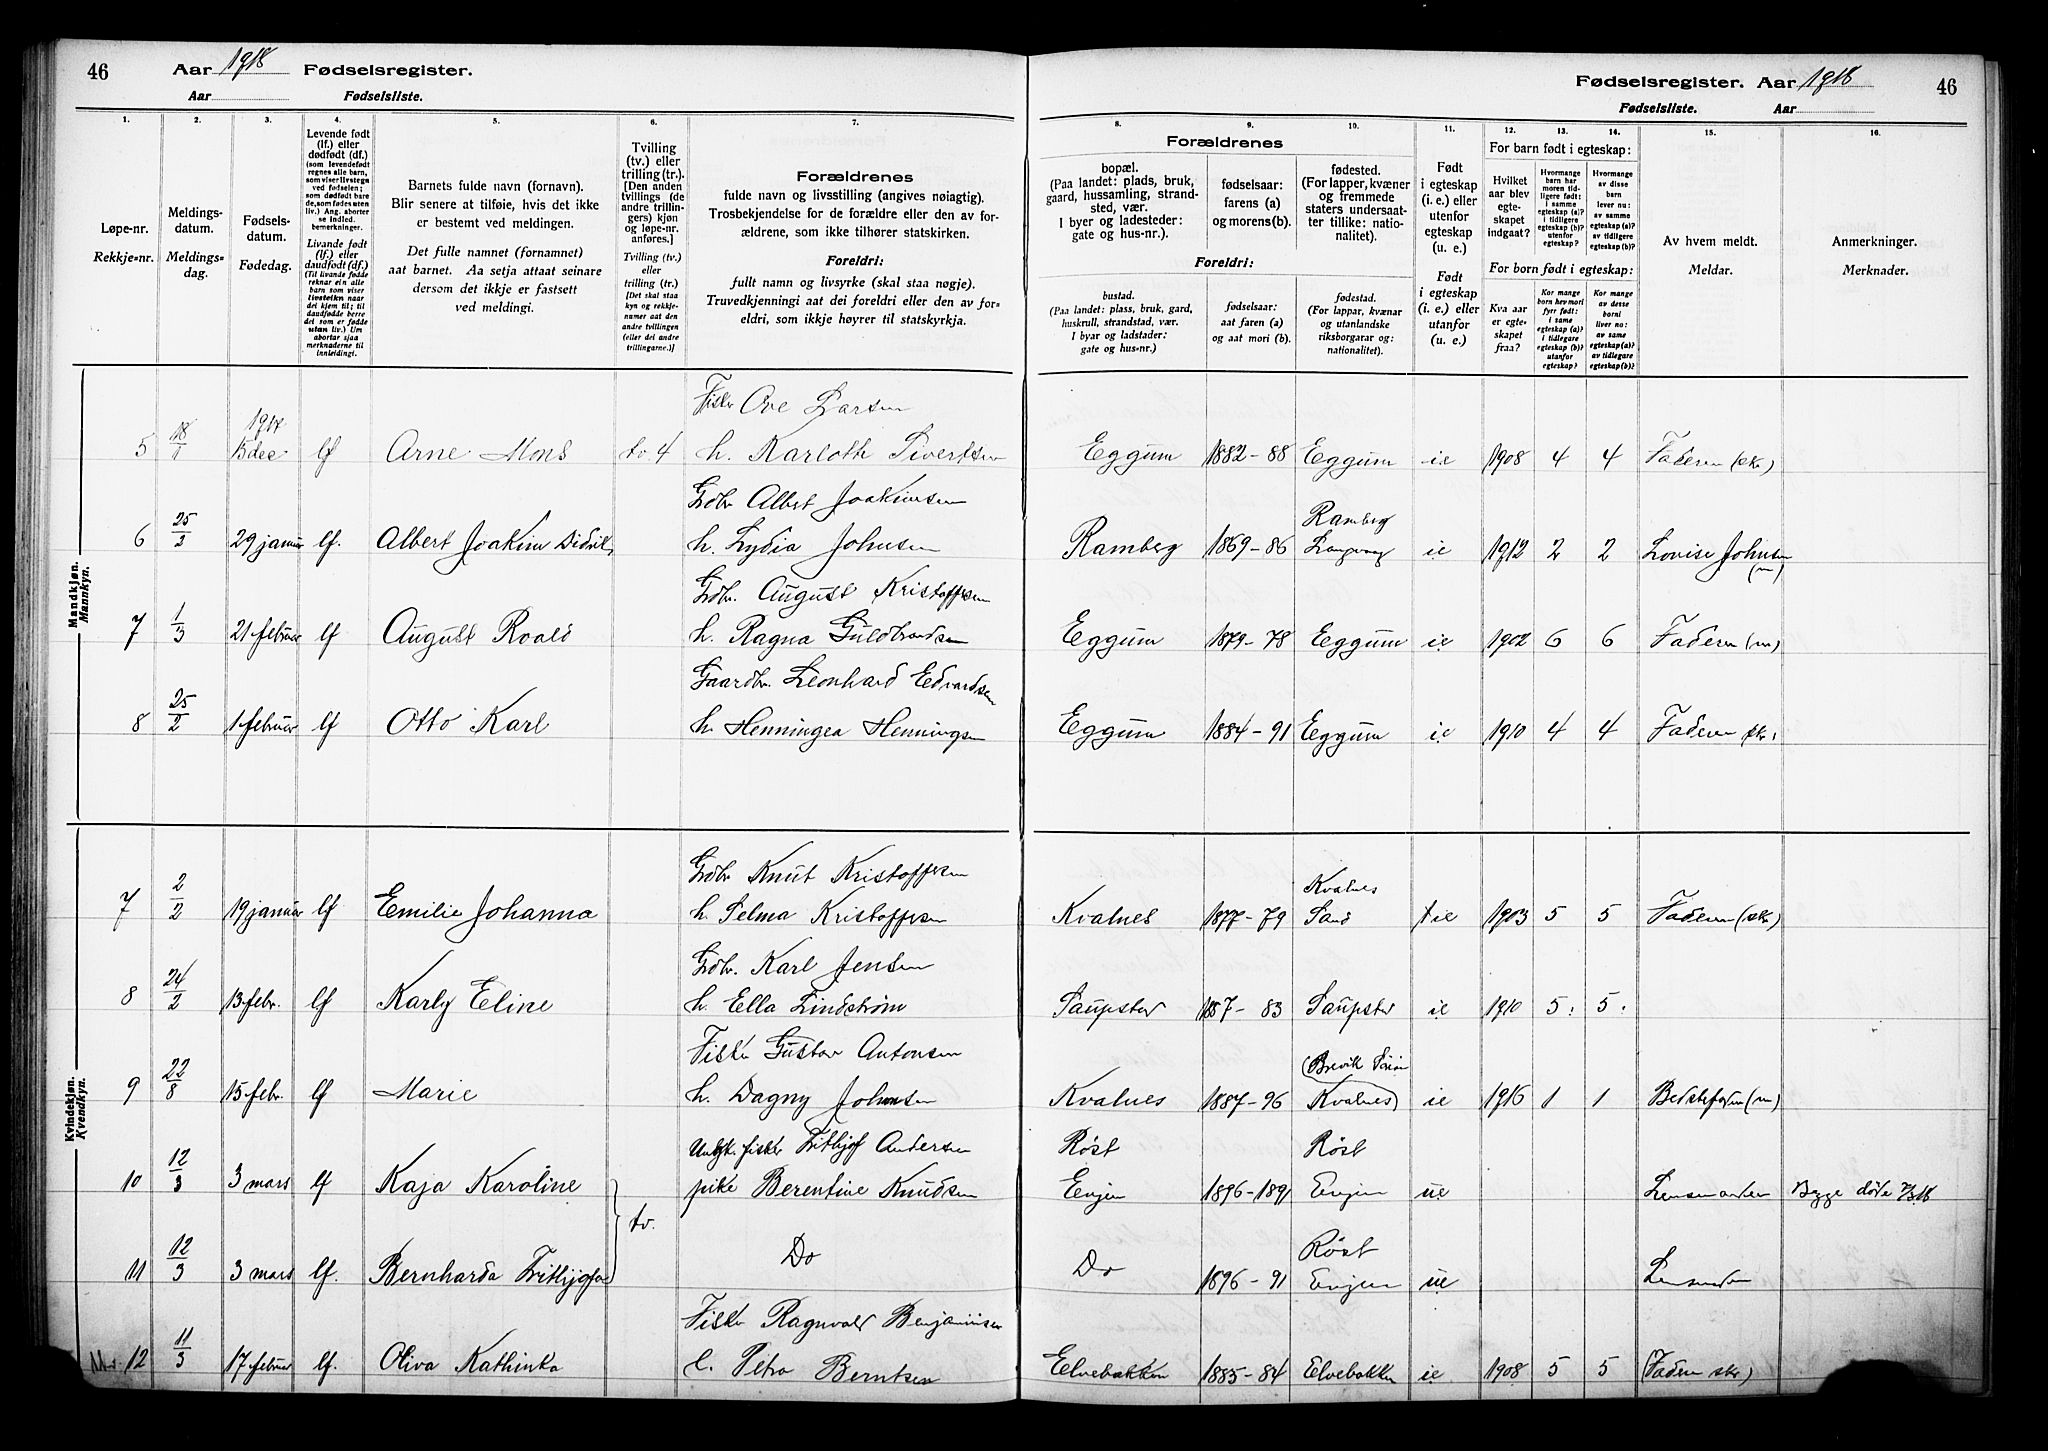 46 Aar 1918 Fødselsregister.
Aar Fødselsliste.
Fødselsregister. Aar 1918 46
Fødselsliste. Aar
1. 2. 3. 4. 5. 6. 7.
8. 9. 10. 11. 12. 13. 14. 15. 16.
Løpe-nr.
Rekkje-nr.
Meldings-
datum.
Meldings-
dag.
Fødsels-
datum.
Fødedag.
Levende født
(lf.) eller
dødfødt (df.)
(som levendefødt
regnes alle barn,
som viser livstegn
ved fødselen;
som dødfødt bare
de, som fødes uten
liv.) Ang. aborter
se indled.
bemerkninger.
Livande født
(lf.) eller
daudfødt (df.)
(Til livande fødde
reknar ein alle
barn som viser
livsteikn naar
dei kjem til; til
daudfødde berre
dei som er fødde
utan liv.) Um
abortar sjaa
merknaderne til
innleidingi.
Barnets fulde navn (fornavn).
Blir senere at tilføie, hvis det ikke
er bestemt ved meldingen.
Det fulle namnet (fornamnet)
aat barnet. Aa setja attaat seinare
dersom det ikkje er fastsett
ved meldingi.
Tvilling
(tv.) eller
trilling (tr.).
[Den anden
tvillings (de
andre trillin-
gers) kjøn
og løpe-nr.
anføres.]
Tvilling (tv.)
eller
trilling (tr.)
[Det skal staa
kyn og rekkje-
numer aat den
andre tvillingen
(eller dei andre
trillingarne.)]
Forældrenes
fulde navn og livsstilling (angives nøiagtig).
Trosbekjendelse for de forældre eller den av for-
ældrene, som ikke tilhører statskirken.
Foreldri:
fullt namn og livsyrke (skal staa nøgje).
Truvedkjenningi aat dei foreldri eller den av for-
eldri, som ikkje høyrer til statskyrkja.
Forældrenes
bopæl.
(Paa landet: plads, bruk,
gaard, hussamling, strand-
sted, vær.
I byer og ladesteder:
gate og hus-nr.).
fødselsaar:
farens (a)
og morens (b).
fødested.
(For lapper, kvæner
og fremmede
staters undersaat-
ter tillike: natio-
nalitet).
Foreldri:
bustad.
(Paa landet: plass, bruk, gard,
huskrull, strandstad, vær.
I byar og ladstader:
gate og hus-nr.)
fødselsaar:
aat faren (a)
og aat mori (b).
fødestad.
(For lappar, kvænar
og utanlandske
riksborgarar og:
nationalitet).
Født
i egteskap
(i. e.) eller
utenfor
egteskap
(u. e.)
Født
i egteskap
(i. e.) eller
utanfor
(u. e.)
For barn født i egteskap:
Hvilket
aar blev
egte-
skapet
indgaat?
Hvormange
barn har
moren tid-
ligere født:
i samme
egteskap (a)?
i tidligere
egteskap (b)?
utenfor
egteskap?
Hvormange
av disse
barn
lever nu:
av samme
egteskap (a)?
av tidligere
egteskap (b)?
For born født i egteskap:
Kva aar
er egte-
skapet
fraa?
Kor mange
born hev mori
fyrr født:
i same
egteskap (a)?
i tidlegare
egteskap (b)?
utanfor
egteskap?
Kor mange
av desse
borni
liver no:
av same
egteskap (a)?
av tidlegare
egteskap (b)?
Av hvem meldt.
Meldar.
Anmerkninger.
Merknader.
Mandkjøn.
Mannkyn.
1917 Fisker Ove Larsen
5 18/1 15 dec lf Arne Mons tv. 4 h. Karloth Sivertsen Eggum 1882-88 Eggum ie 1908 4 4 Faderen (skr)
Gdbr. Albert Joakimsen Ramberg
6 25/2 29 januar lf. Albert Joakim Didrik h. Lydia Johnsen Ramberg 1869-86 ie 1912 2 2 Lovise Johnsen (m)
Gdbr. August Kristoffersen
7 1/3 21 februar lf August Roald h. Ragna Guldbrandsen Eggum 1879-78 Eggum i.e 1902 6 6 Faderen (m)
Gaardbr. Leonhard Edvardsen
8 25/2 1 februar lf Otto Karl h. Henningea Henningsen Eggum 1884-91 Eggum i.e 1910 4 4 Faderen skr.
Kvindekjøn.
Kvendkyn.
Gdbr. Knut Kristoffersen Kvalnes
7 2/2 19 januar lf Emilie Johanna h. Selma Kristoffersen Kvalnes 1877-79 Sand ie 1903 5 5 Faderen (skr)
Gdbr. Karl Jensen
8 24/2 13 febr. lf Karly Eline h. Ella Lindstrøm Saupstad 1887-83 Saupstad ie 1910 5: 5:
Fisker Gustav Antonsen (Brevik
9 22/8 15 febr. lf Marie h. Dagny Johnsen Kvalnes 1887-96 Kvalnes) ie 1916 1 1 Bedstefaren (m)
Ungk. fisker Frithjof Andersen Røst Røst
10 12/3 3 mars lf Kaja Karoline pike Berentine Knudsen Evjen 1896-1891 Evjen ue Lensmanden Begge døde 7/3 18
tv.
Do Røst
11 12/3 3 mars lf. Bernharda Frithjofa Do 1896-91 Evjen ue Lensmanden
Fisker Ragnvald Benjaminsen
12 11/3 17 februar lf. Oliva Kathinka h. Petra Berntsen Elvebakken 1885-84 Elvebakken ie 1908 5 5 (Faderen skr)